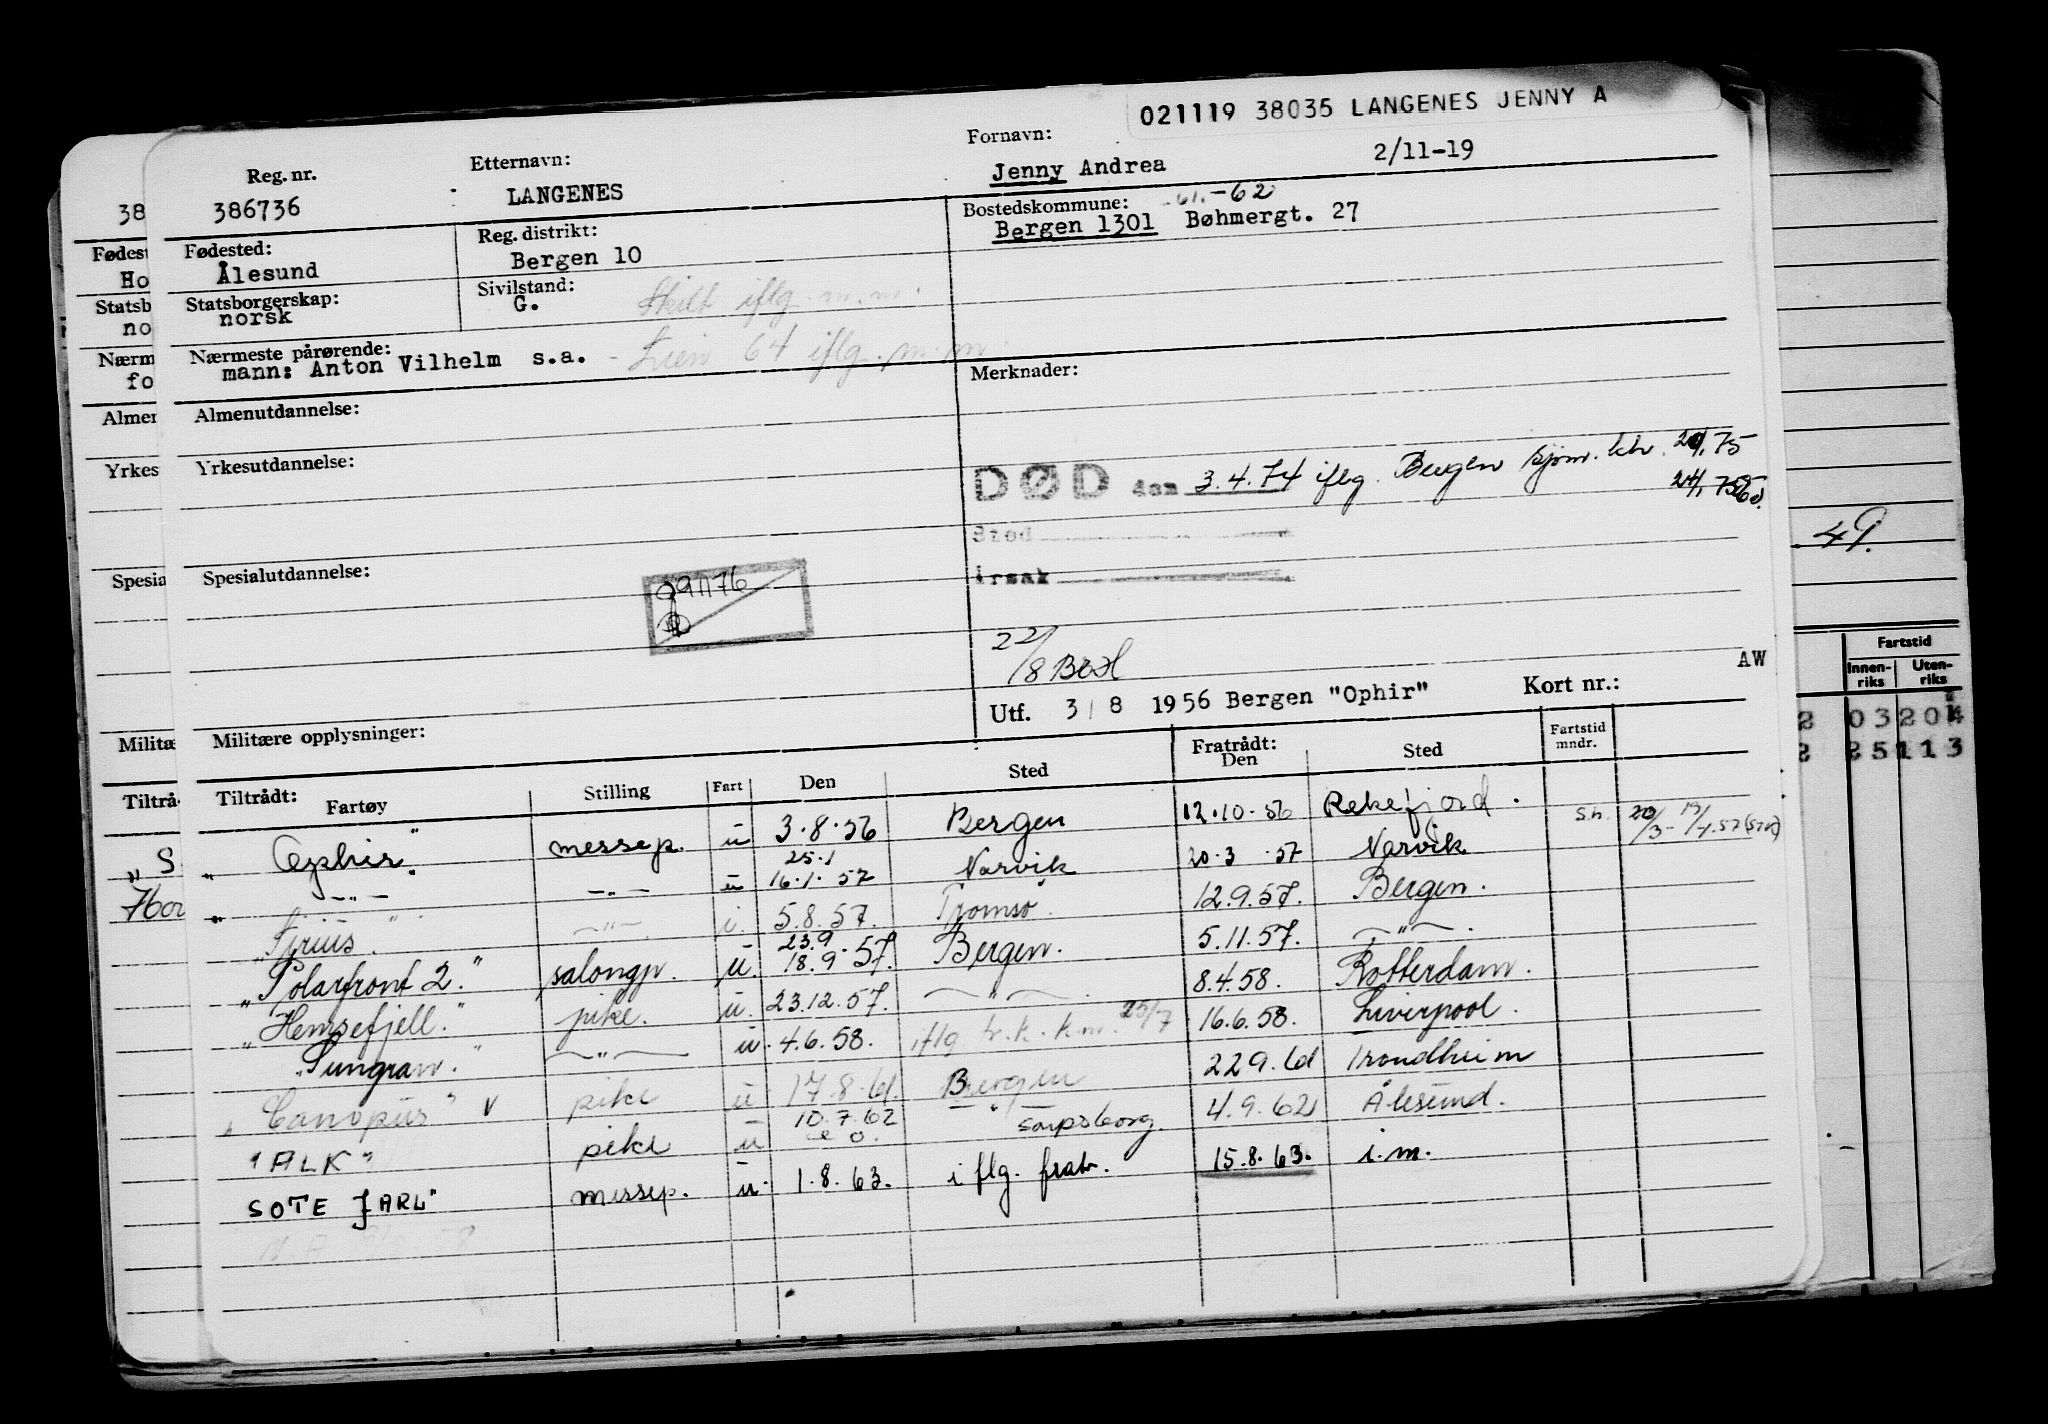 021119 38035 LANGENES JENNY A
Reg. nr. Etternavn: Fornavn:
386736 LANGENES Jenny Andrea 2/11-19
Fødested: Reg. distrikt: Bostedskommune: -62
Ålesund Bergen 10 Bergen 1301 Bøhmergt. 27
Statsborgerskap: Sivilstand:
norsk G. Skilt iflg. m.m.
Nærmeste pårørende:
mann: Anton Vilhelm s.a. - 64 iflg. m.m.
Almenutdannelse: Merknader:
Yrkesutdannelse:
DØD den 3.4.74 iflg. Bergen sjøm. ktr.
Sted
Årsak
Spesialutdannelse:
091176
22/8
AW
Utf. 3/8 1956 Bergen "Ophir" Kort nr.:
Militære opplysninger:
Tiltrådt: Fartøy Stilling Fart Den Sted Fratrådt: Den Sted Fartstid mndr.
"Ophir" messep. u 3.8.56 Bergen 12.10.56 Rekefjord.
" -"- -"- u 25.1 16.1.57 Narvik 20.3.57 Narvik s.h.
"Sirius" -"- i. 5.8.57. Tromsø. 12.9.57. Bergen.
"Polarfront 2." salongp. u. 23.9 18.9.57. Bergen. 5.11.57. -"-.
"Hemsefjell." pike. u. 23.12.57. -"-. 8.4.58. Rotterdam.
"Sungran." -"- u. 4.6.58. iflg 25/7 16.6.58. Liverpool.
"Canopus" v pike u 17.8.61. Bergen 22.9.61 Trondheim
"ALK" pike u 10.7.62 -"- Sarpsborg. 4.9.62 Ålesund.
SOTE JARL" messep. u. 1.8.63. iflg. fratr. 15.8.63. i.m.
38
Fødest
Ho
Statsb
no
Nærm
fo
Almen
Yrkes
Spesia
Militæ
Tiltrå
"S
Hor
49.
Fartstid
Innen-riks Uten-riks
2 03 204
2 25 113